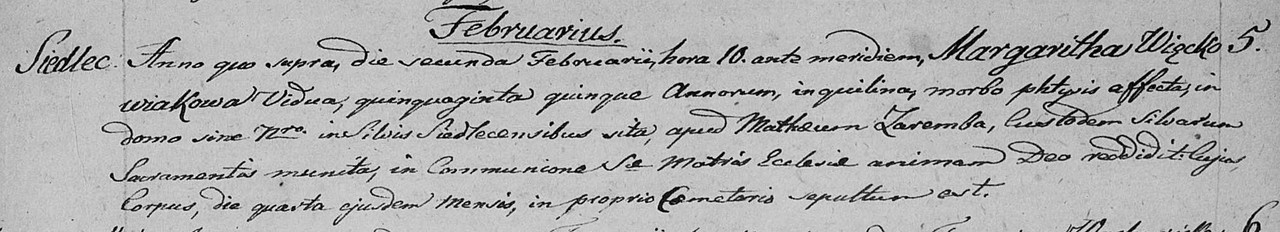 Februarius.
Siedlec. Anno quo supra, die secunda Februarii, hora 10. ante meridiem, Margaritha Więcko 5.
wiakowa Vidua, quinquaginta quinque Annorum, inquilina, morbo phtysis affecta, in
domo sine Nro. in Silvis Siedlecensibus sita, apud Matheum Zaremba, Custodem Silvarum
Sacramentis munita, in Communione Ste Matris Ecclesiæ animam Deo reddidit: Cujus,
Corpus, die quarta ejusdem Mensis, in proprio Cemeterio sepultum est.
6